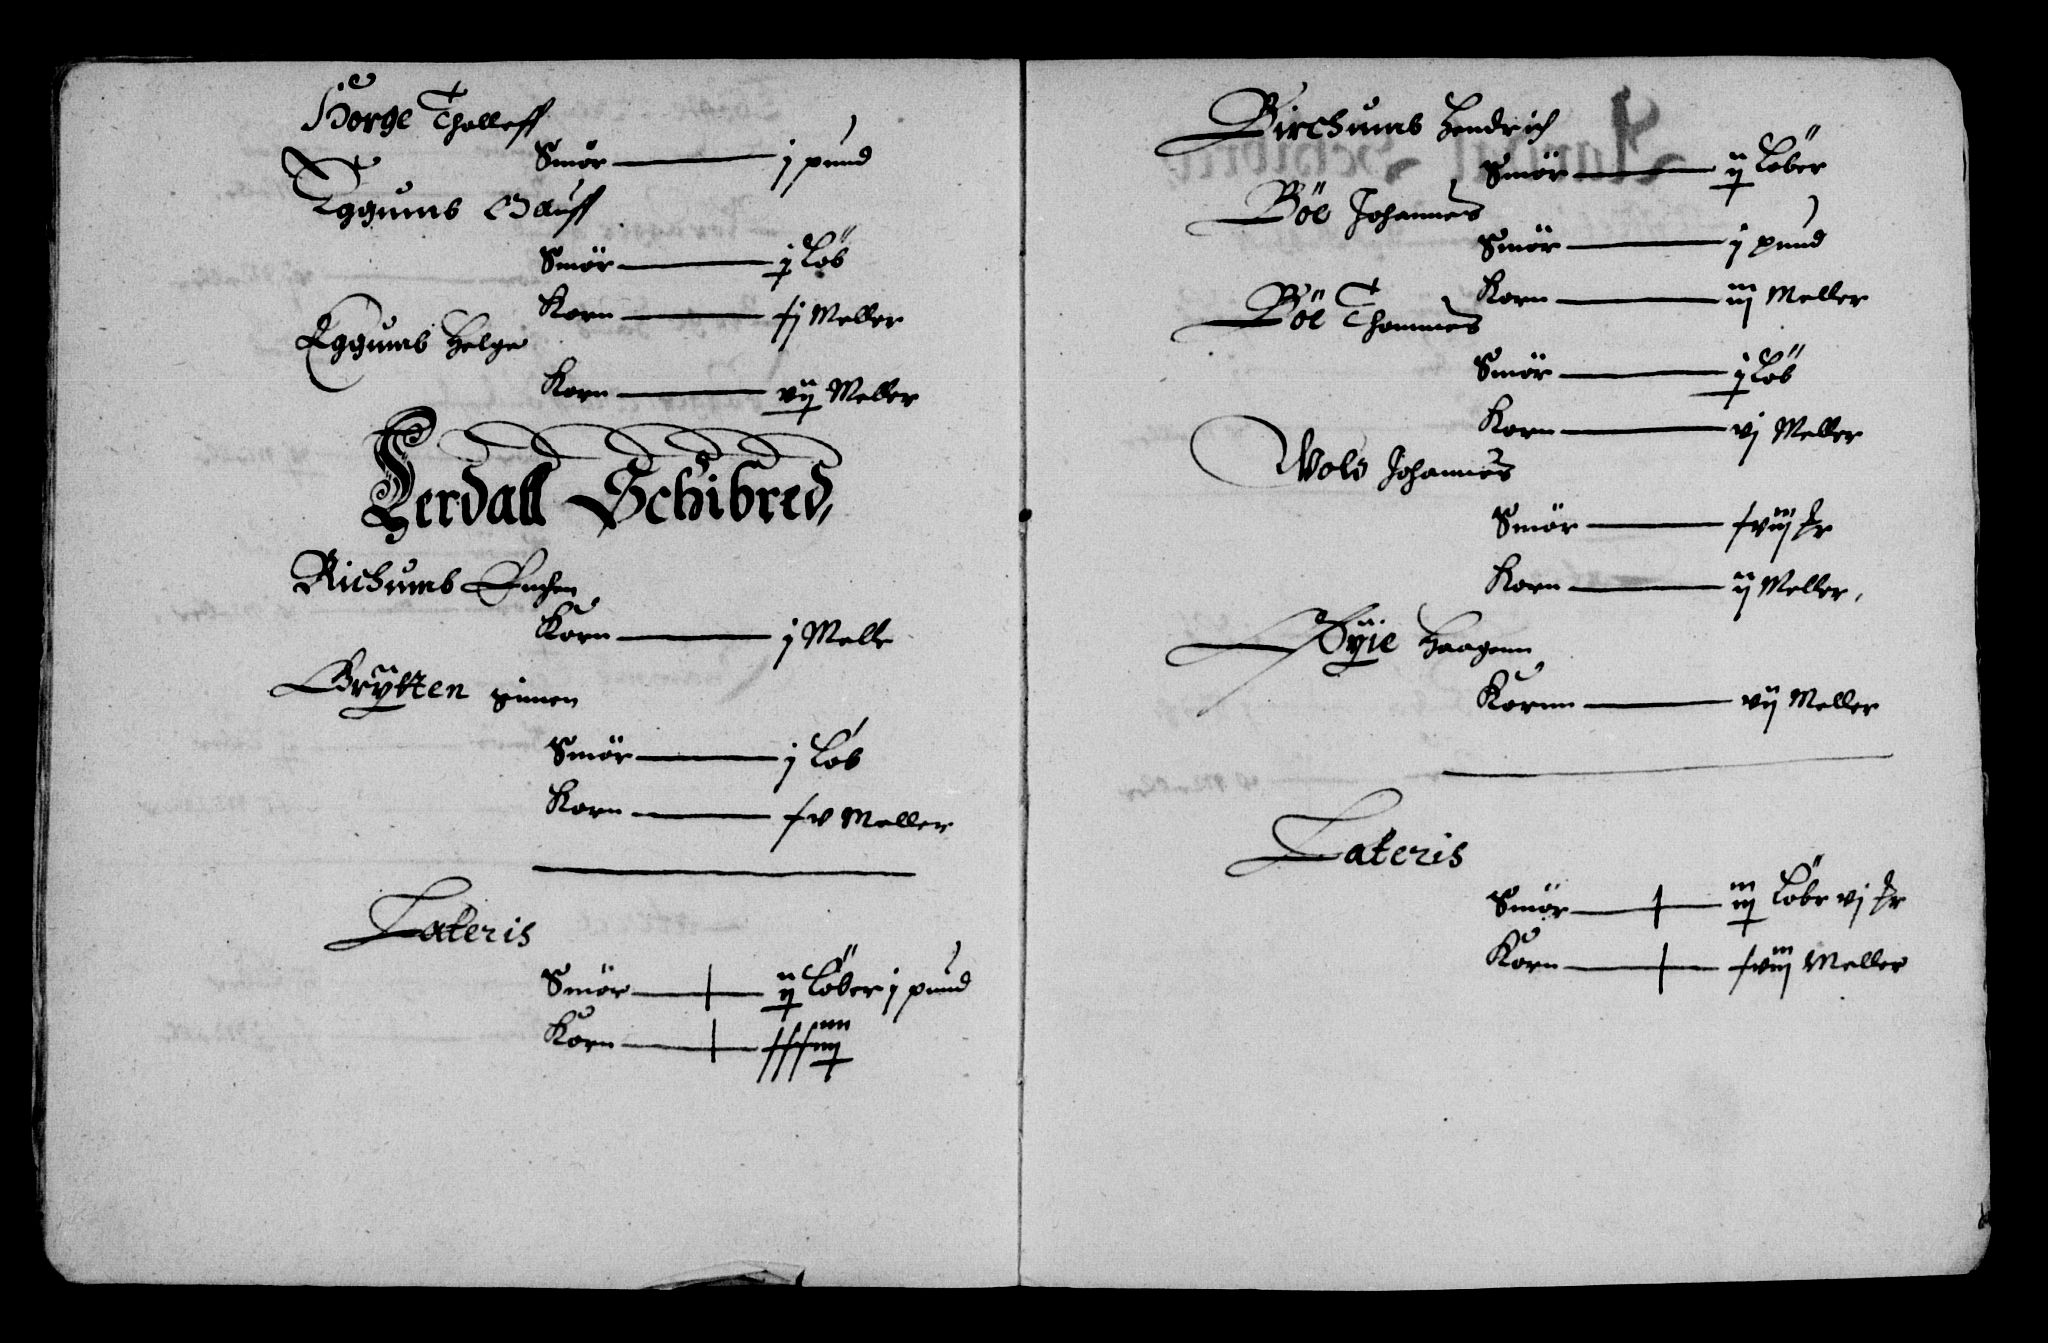 Horge Tholleff
Smör — j pund
Eggums Gauff
Smör — j Löb
Korn — xj Meller
Eggums Helge
Korn — vij Meller
Lerdall Schibred,
Richums
Korn — j Melle
Brÿtten
Smör — j Löb
Korn — xv Meller
Lateris
Smör — Löber j pund
Korn —
Birchums Hendrich
Smör — ij Löber
Böe Johannes
Smör — j pund
Korn — iij Meller
Böe Thommes
Smör — j Löb
Korn — vj Meller
Wold Johannes
Smör — xviij
Korn — ij Meller,
Öÿie Haagenn
Kornn — vij Meller
Lateris
Smör — iij Löbr vj
Korn — xviij Meller